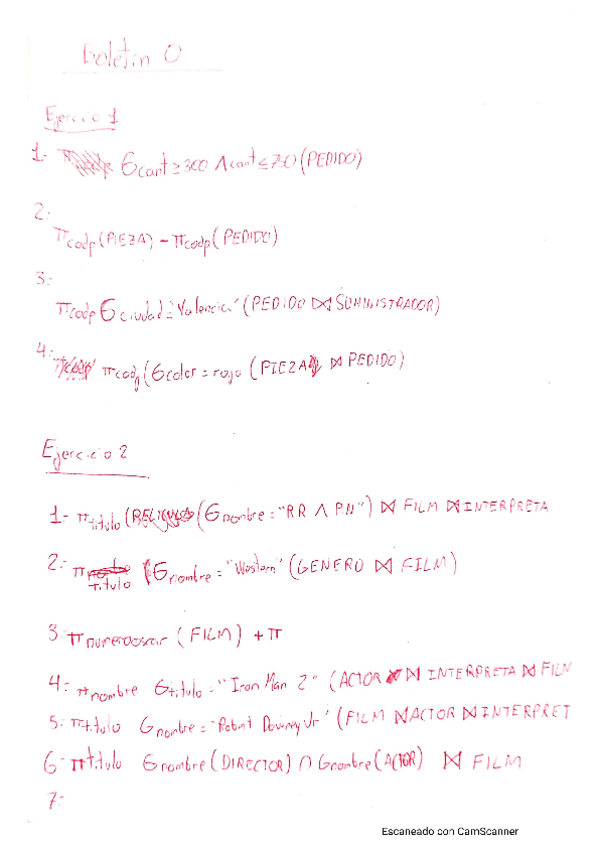 Boletín 0
Ejercicio 1
1- σ cant ≥ 300 ∧ cant ≤ 700 (PEDIDO)
2-
π codp (PIEZA) - π codp (PEDIDO)
3-
π codp σ ciudad = 'Valencia' (PEDIDO ⋈ SUMINISTRADOR)
4- π codp (σ color = rojo (PIEZA ⋈ PEDIDO)
Ejercicio 2
1- π titulo ( (σ nombre = "RR ∧ PN") ⋈ FILM ⋈ INTERPRETA
2- π titulo (σ nombre = "Western" (GENERO ⋈ FILM)
3- π numerooscar (FILM) + π
4- π nombre σ titulo = "Iron Man 2" (ACTOR ⋈ INTERPRETA ⋈ FILM
5- π titulo σ nombre = "Robert Downey Jr" (FILM ⋈ ACTOR ⋈ INTERPRET
6- π titulo σ nombre (DIRECTOR) ∩ σ nombre (ACTOR) ⋈ FILM
7-
Escaneado con CamScanner